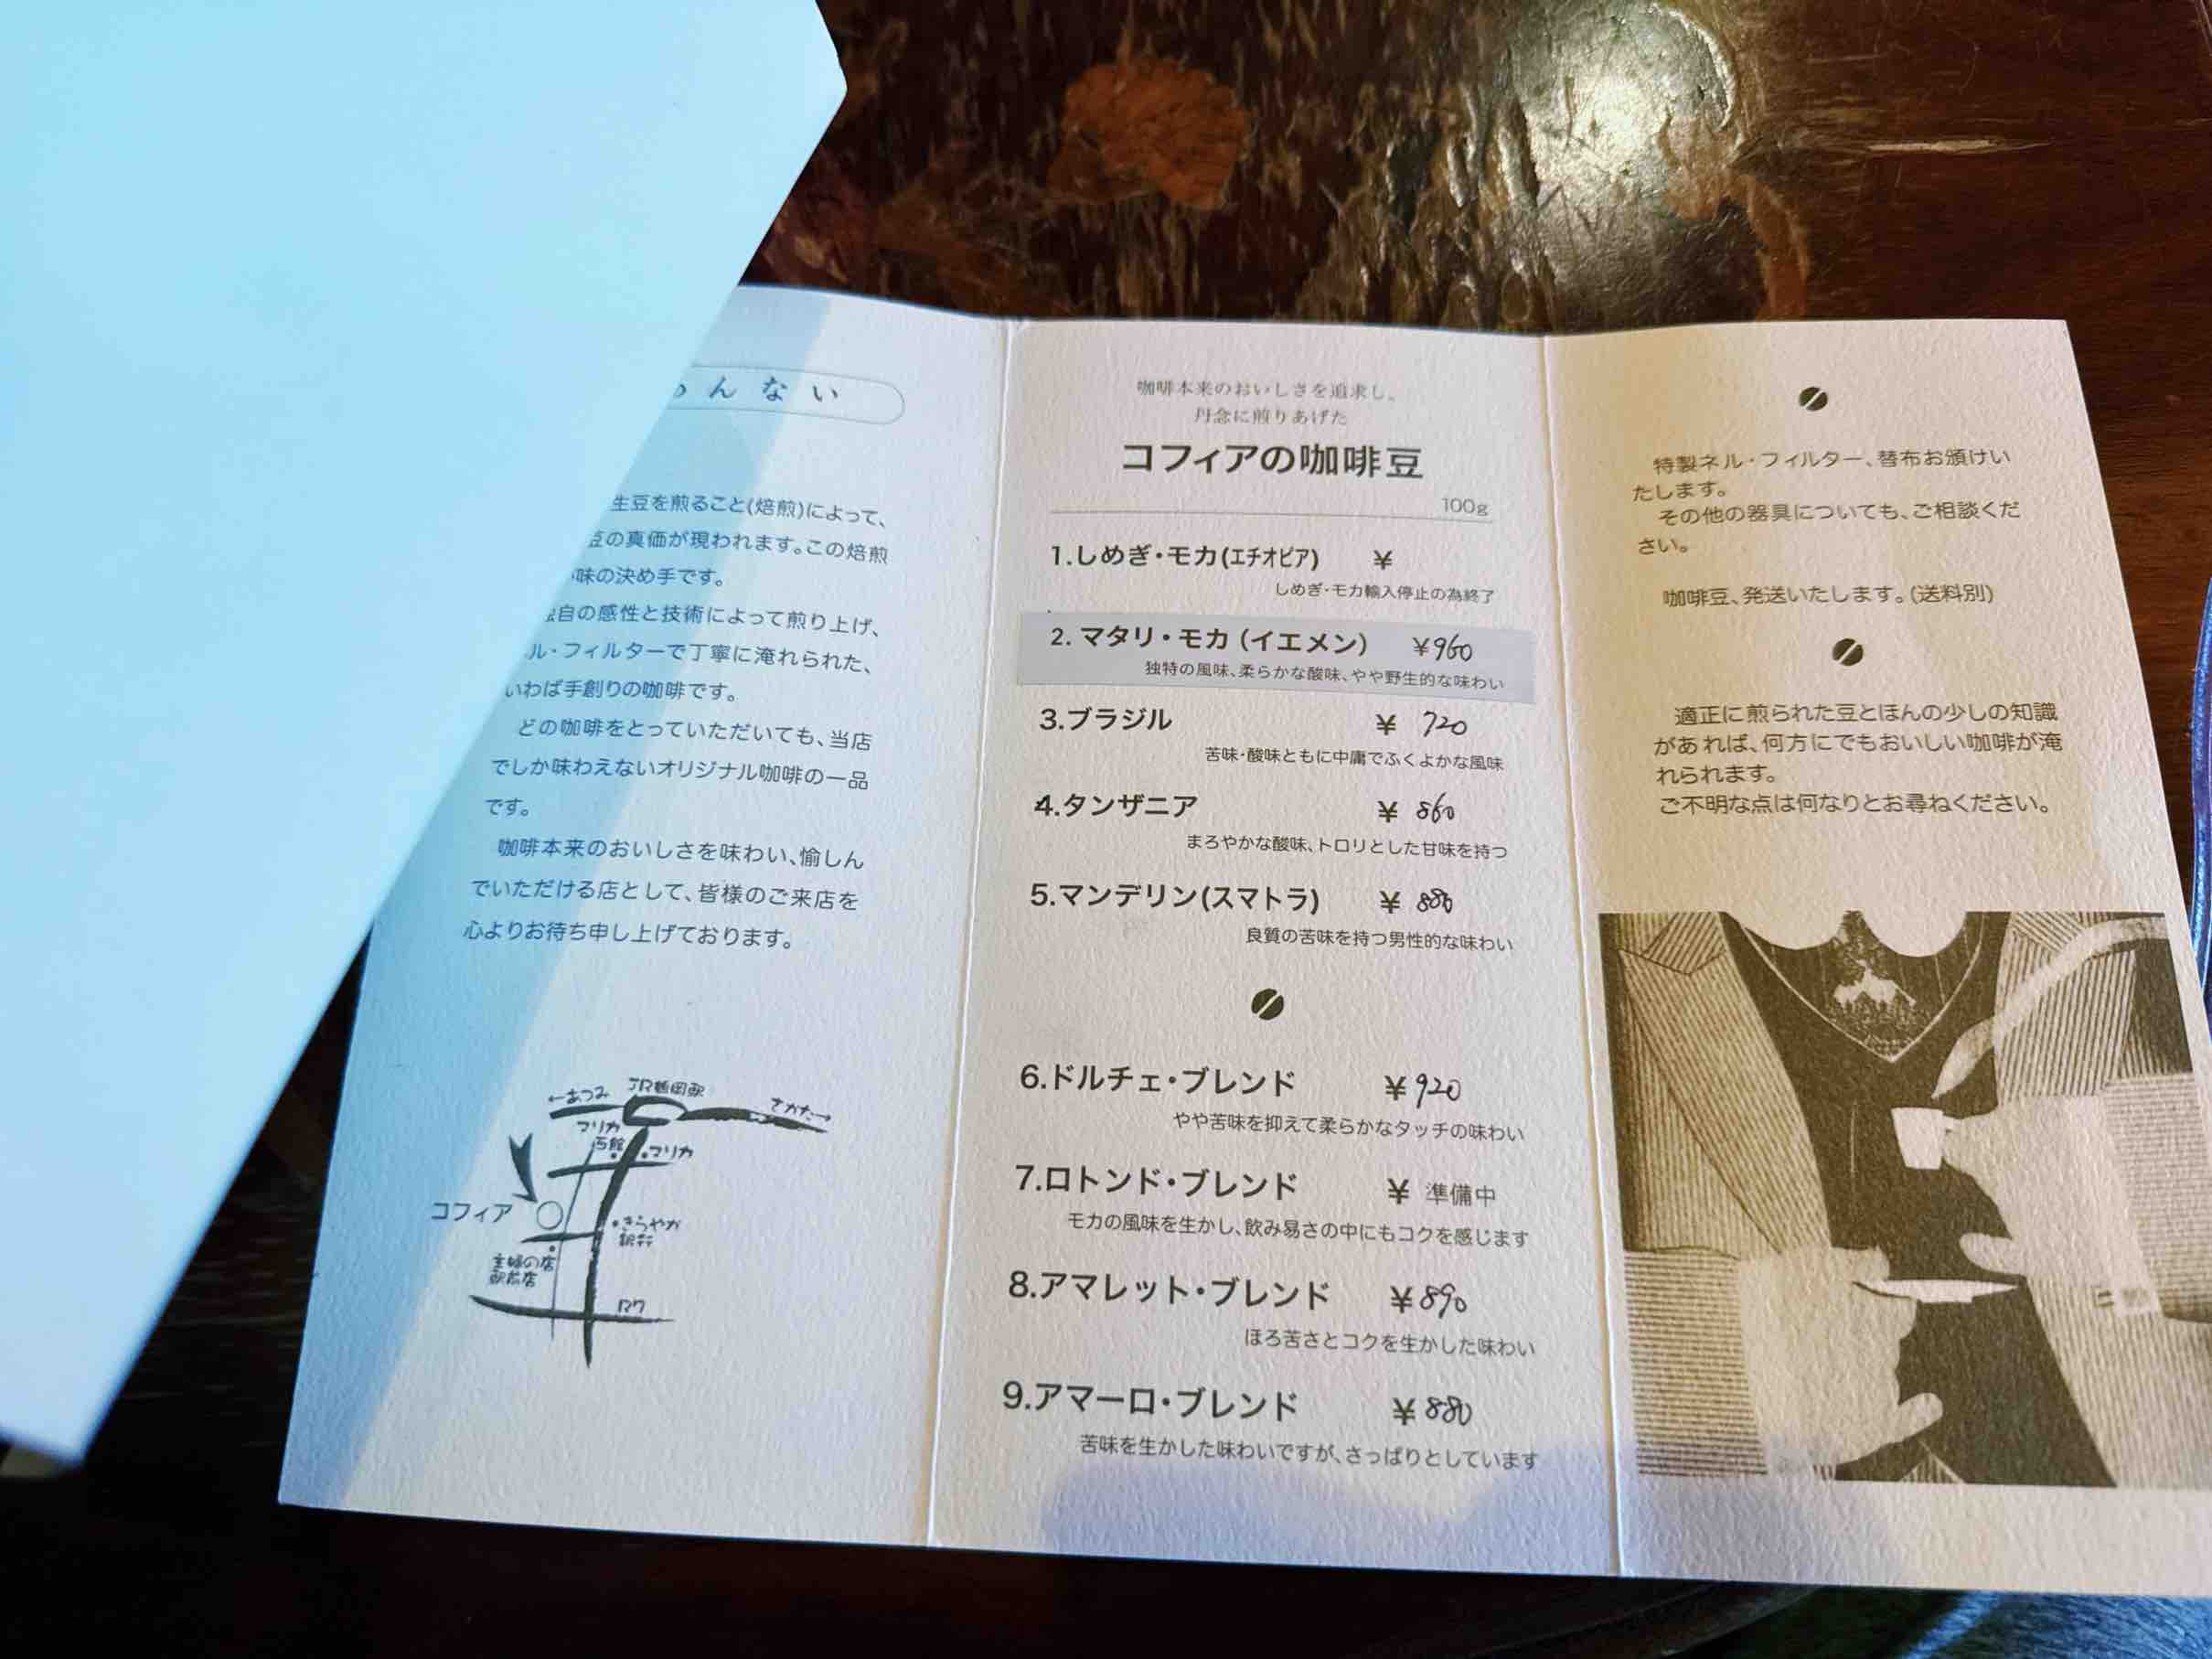 んない
生豆を煎ること(焙煎)によって、
豆の真価が現われます。この焙煎
味の決め手です。
自の感性と技術によって煎り上げ、
ル・フィルターで丁寧に淹れられた、
いわば手創りの咖啡です。
どの咖啡をとっていただいても、当店
でしか味わえないオリジナル咖啡の一品
です。
咖啡本来のおいしさを味わい、愉しん
でいただける店として、皆様のご来店を
心よりお待ち申し上げております。
←あつみ
JR鶴岡駅
さかた→
マリカ
・マリカ
コフィア
・きらやか
銀行
主婦の店
駅前店
咖啡本来のおいしさを追求し、
丹念に煎りあげた
コフィアの咖啡豆
100g
1.しめぎ・モカ(エチオピア) ¥
しめぎ・モカ輸入停止の為終了
2. マタリ・モカ(イエメン) ¥960
独特の風味、柔らかな酸味、やや野生的な味わい
3.ブラジル ¥ 720
苦味・酸味ともに中庸でふくよかな風味
4.タンザニア ¥ 860
まろやかな酸味、トロリとした甘味を持つ
5.マンデリン(スマトラ) ¥ 880
良質の苦味を持つ男性的な味わい
6.ドルチェ・ブレンド ¥920
やや苦味を抑えて柔らかなタッチの味わい
7.ロトンド・ブレンド ¥ 準備中
モカの風味を生かし、飲み易さの中にもコクを感じます
8.アマレット・ブレンド ¥890
ほろ苦さとコクを生かした味わい
9.アマーロ・ブレンド ¥880
苦味を生かした味わいですが、さっぱりとしています
特製ネル・フィルター、替布お頒けい
たします。
その他の器具についても、ご相談くだ
さい。
咖啡豆、発送いたします。(送料別)
適正に煎られた豆とほんの少しの知識
があれば、何方にでもおいしい咖啡が淹
れられます。
ご不明な点は何なりとお尋ねください。